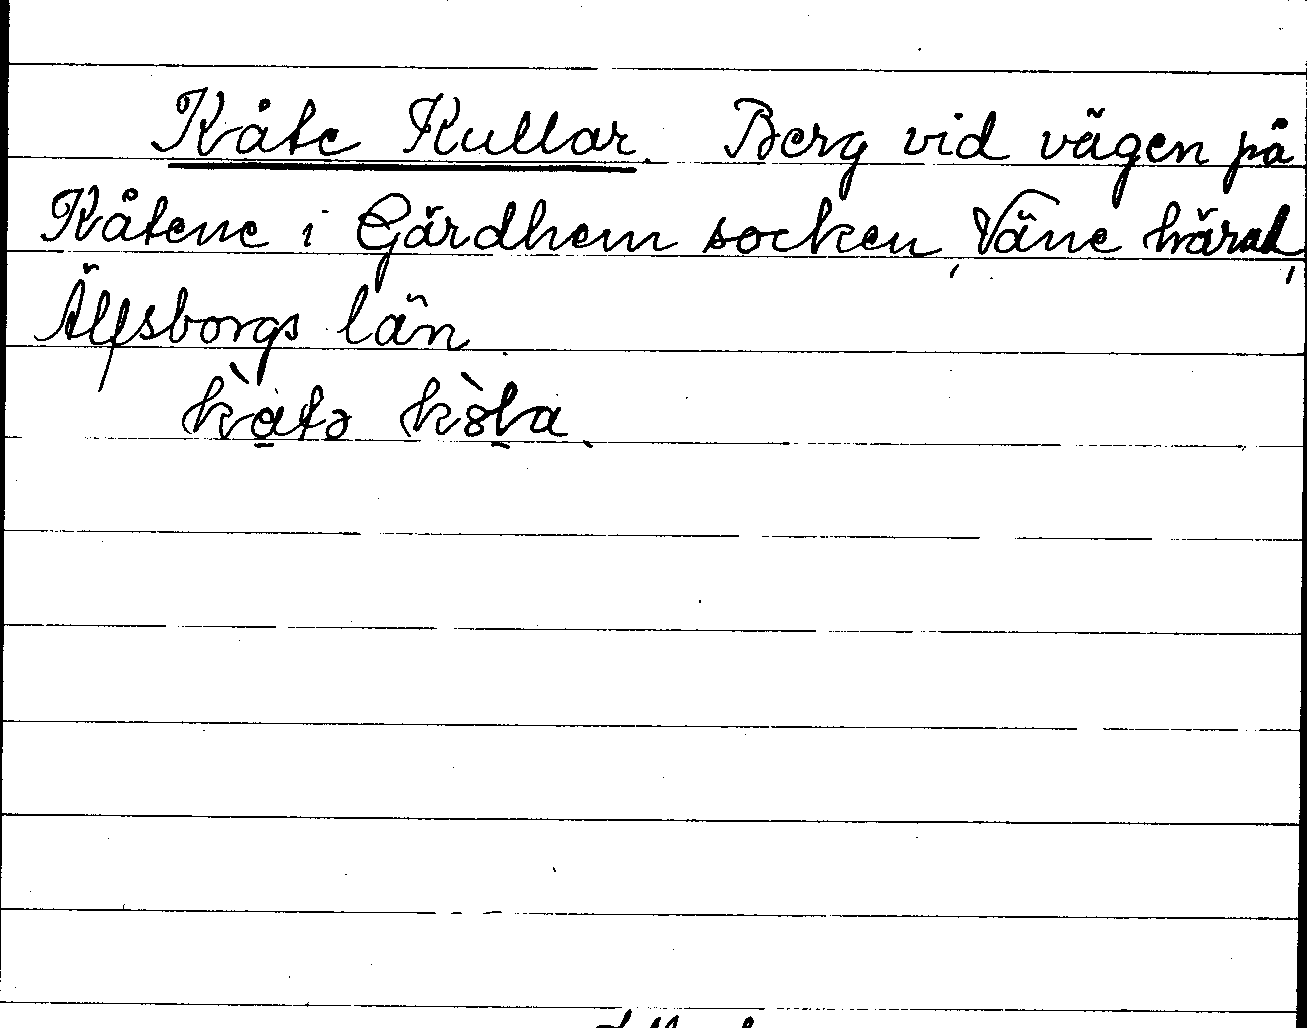 Kåte Kullar. Berg vid vägen på
Kåtene i Gärdhem socken, Väne härad,
Älfsborgs län.